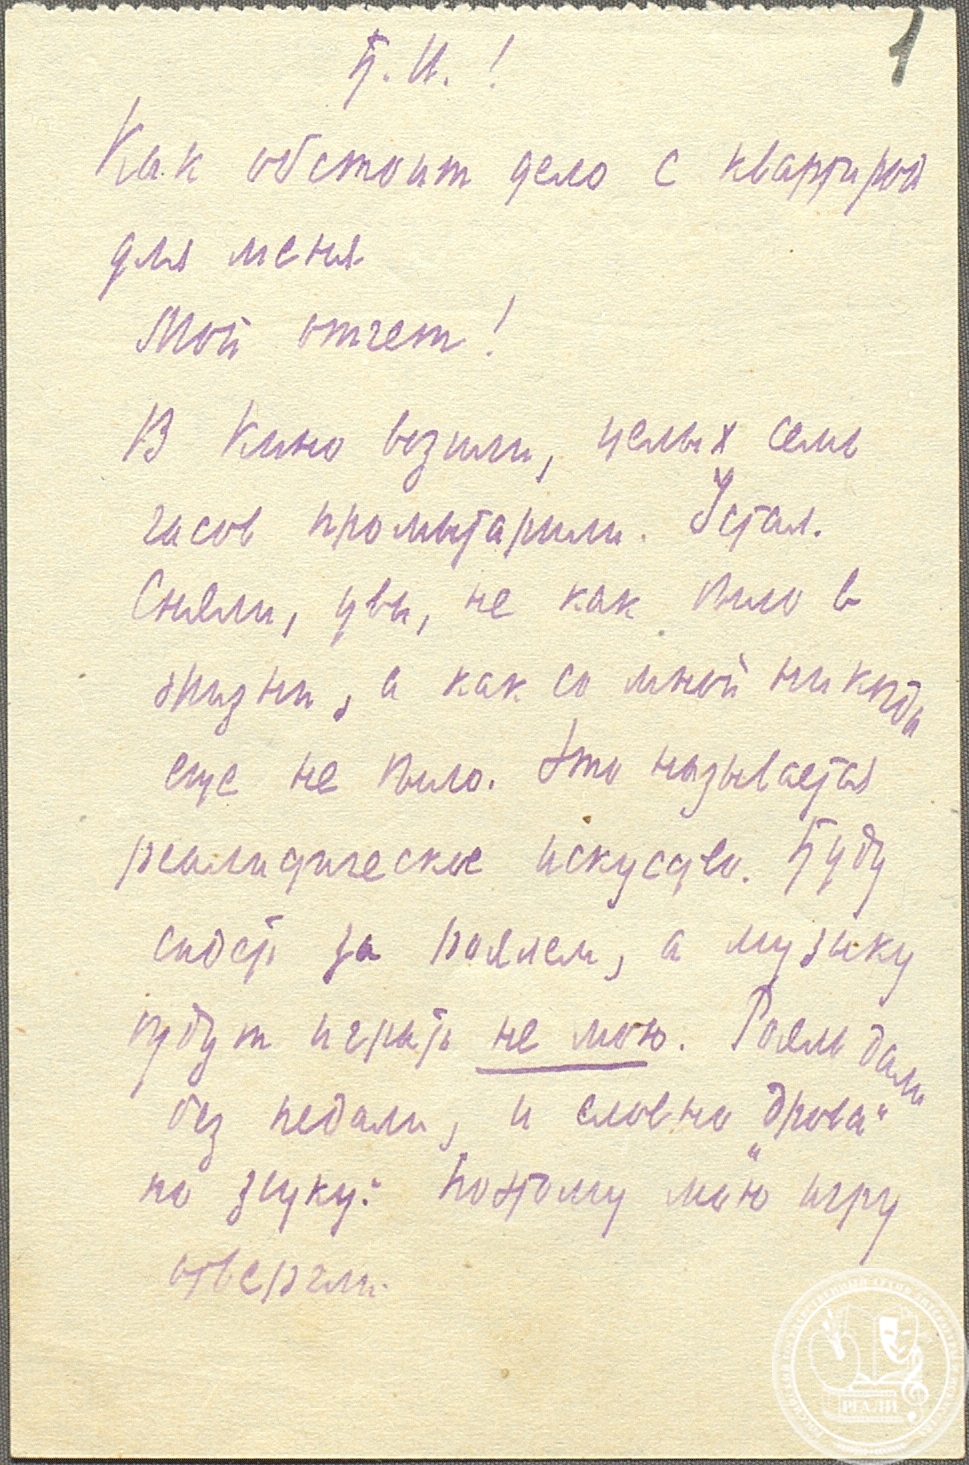 1
Б. И. !
Как обстоит дело с квартирой
для меня
Мой отчет!
В Кино возили, целых семь
часов промытарили. Устал.
Сняли, увы, не как было в
жизни, а как со мной никогда
еще не было. Это называется
реалистическое искусство. Буду
сидеть за роялем, а музыку
будут играть не мою. Рояль дали
без педали, и словно "дрова"
по звуку. Поэтому мою игру
отвергли.
РГАЛИ